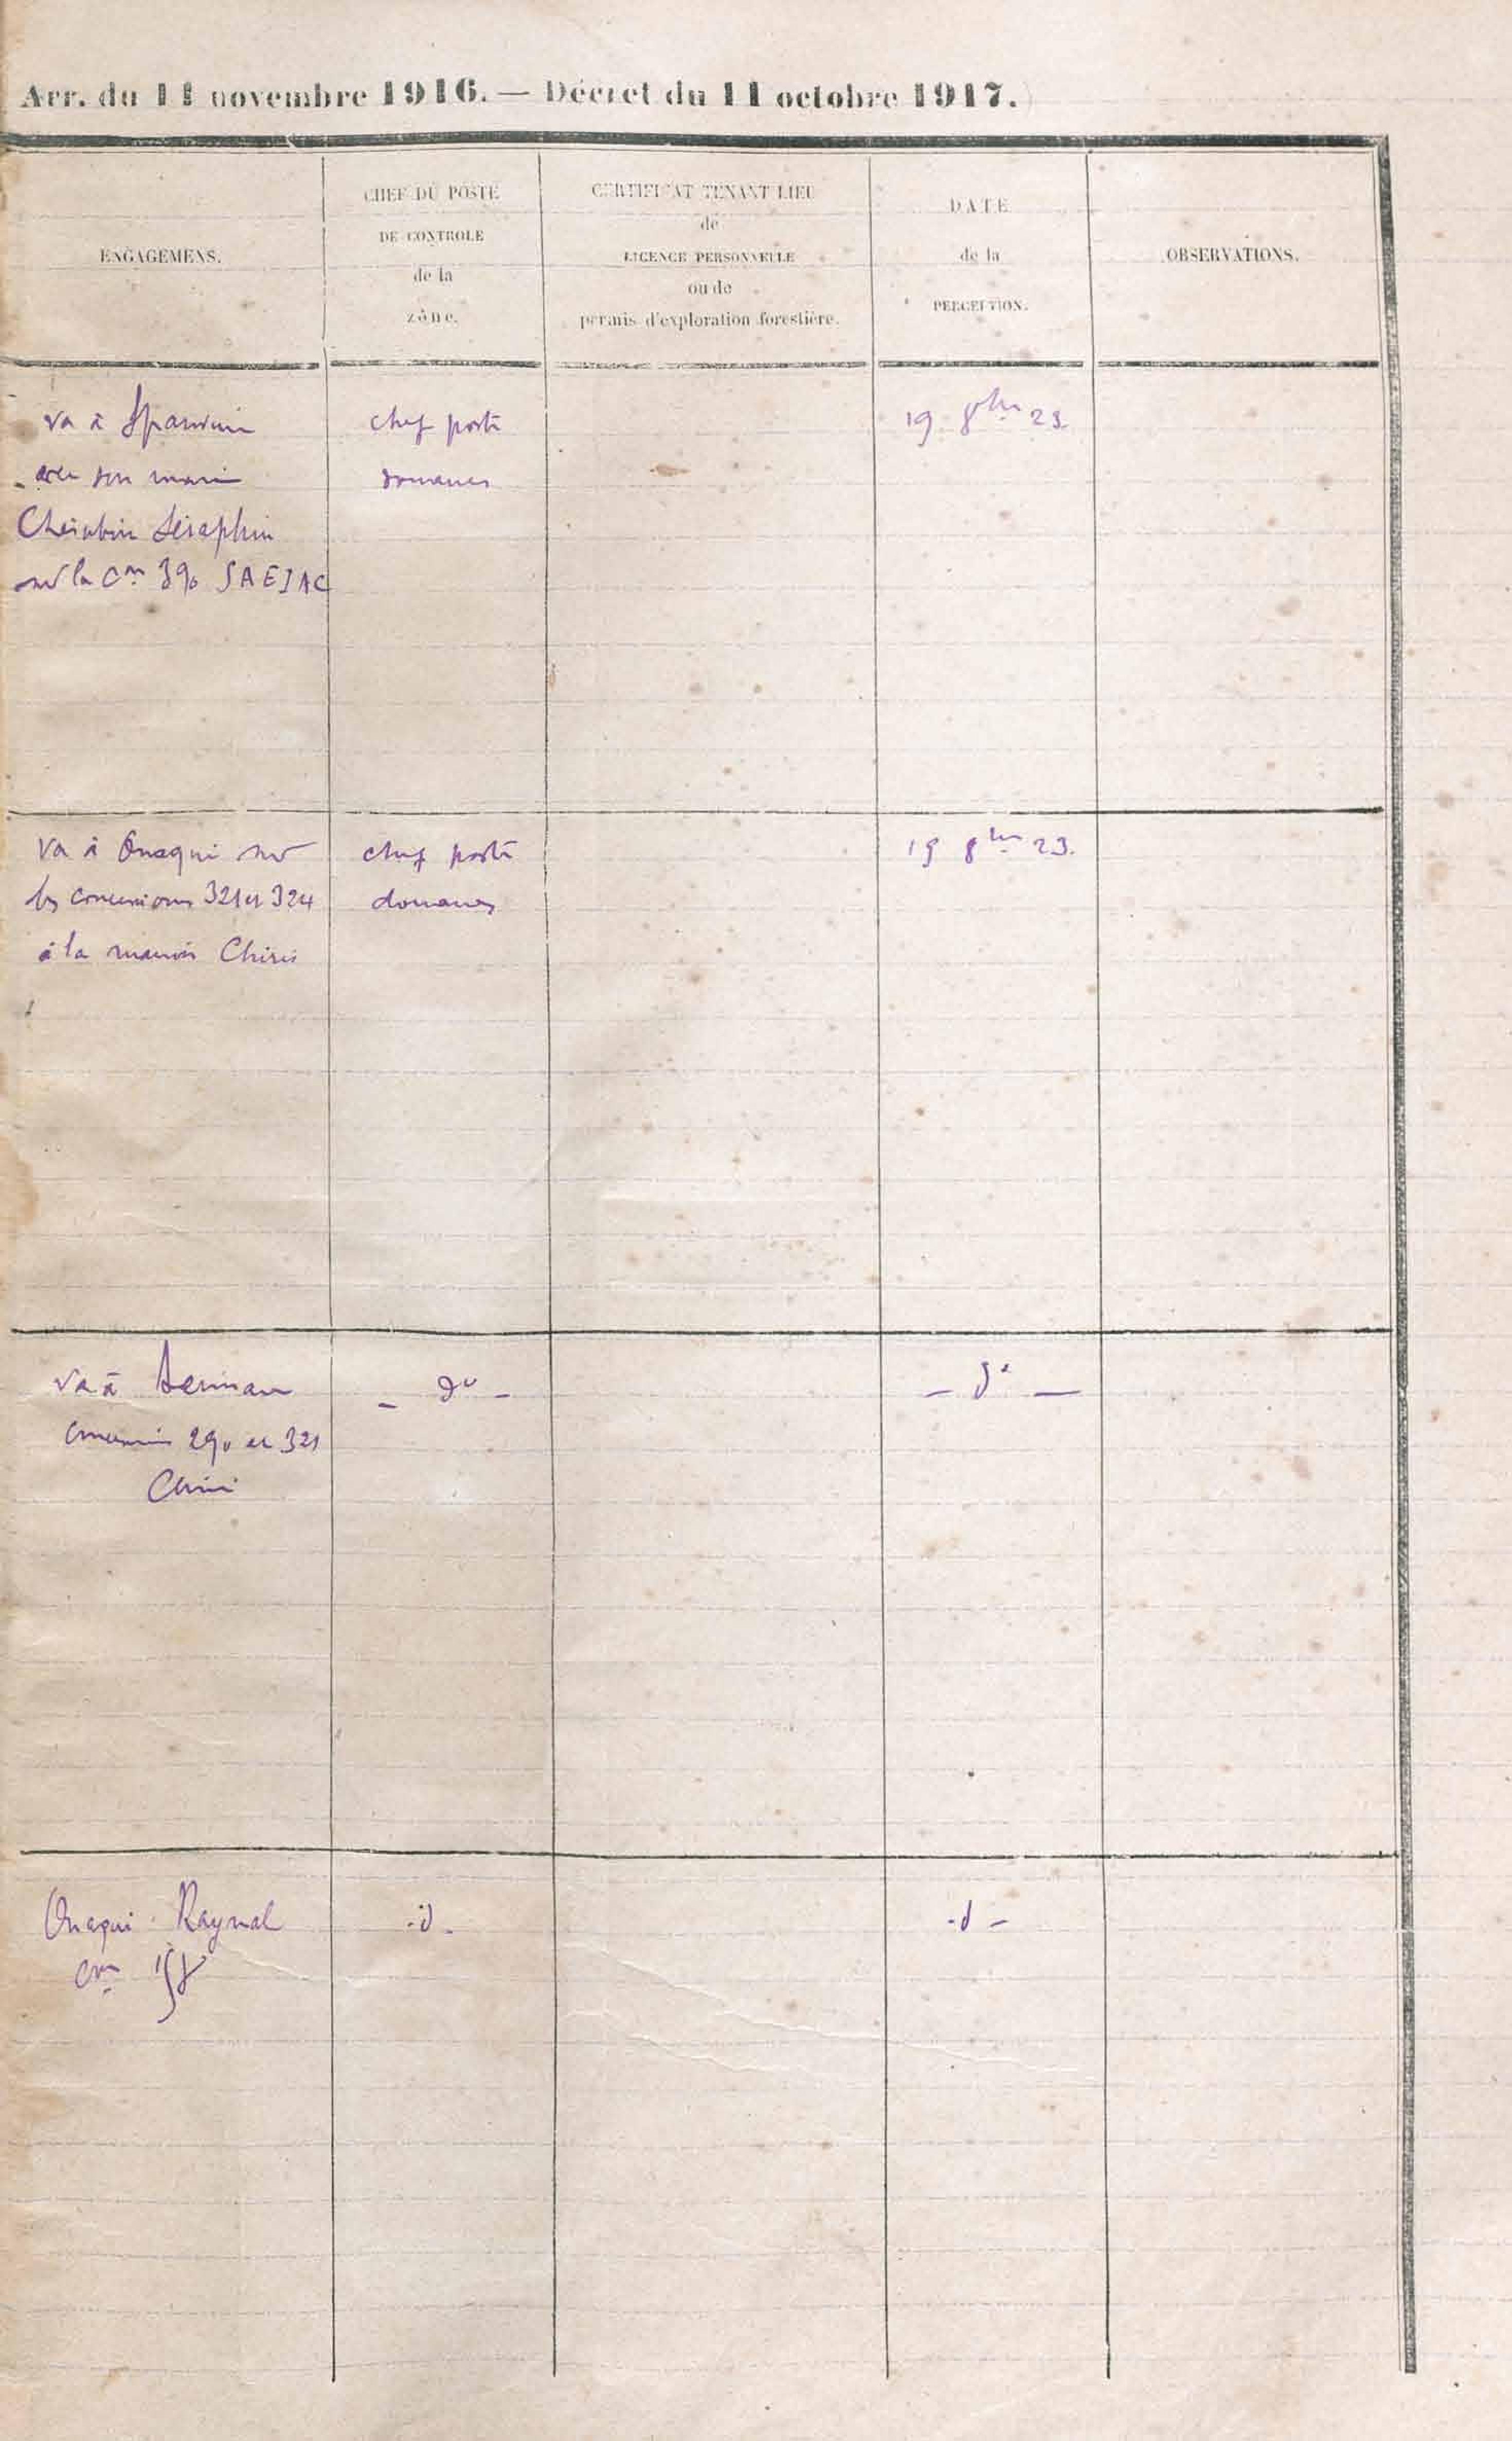 Arr. du 11 novembre 1916. — Décret du 11 octobre 1917.)
ENGAGEMENS.
CHEF DU POSTE
DE CONTROLE
de la
zône.
CERTIFICAT TENANT LIEU
de
LICENCE PERSONNELLE
ou de
permis d'exploration forestière.
DATE
de la
PERCEPTION.
OBSERVATIONS.
va à Sparwin
avec son mari
Chérubin Séraphin
sur la Con 390 SAEIAC
chef poste
douanes
19 8bre 23
va à Ouaqui sur
les concessions 321 et 324
à la maison Chiris
chef poste
douanes
19 8bre 23.
va à
concessions 290 et 321
Chiris
- do -
- do -
Ouaqui Raynal
Con
- d -
- d -